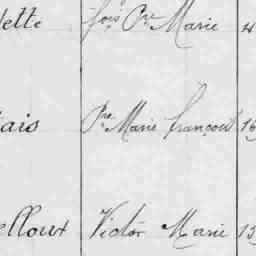 lette fois Pre Marie 4
ais Pre Marie françois 16
elloux Victor Marie 13